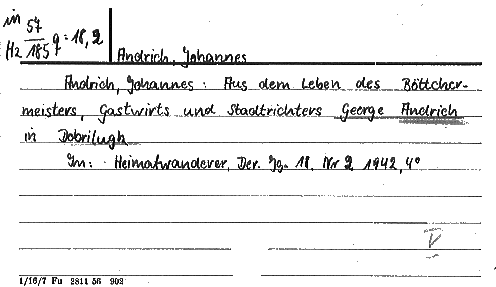 in 57
Hz 185 9:18,2
Andrich, Johannes
Andrich, Johannes: Aus dem Leben des Böttcher-
meisters, Gastwirts und Stadtrichters George Andrich
in Dobrilugh
In: Heimatwanderer, Der. Jg. 18, Nr 2, 1942, 4°
V
1/16/7 Fu 2811 56 903